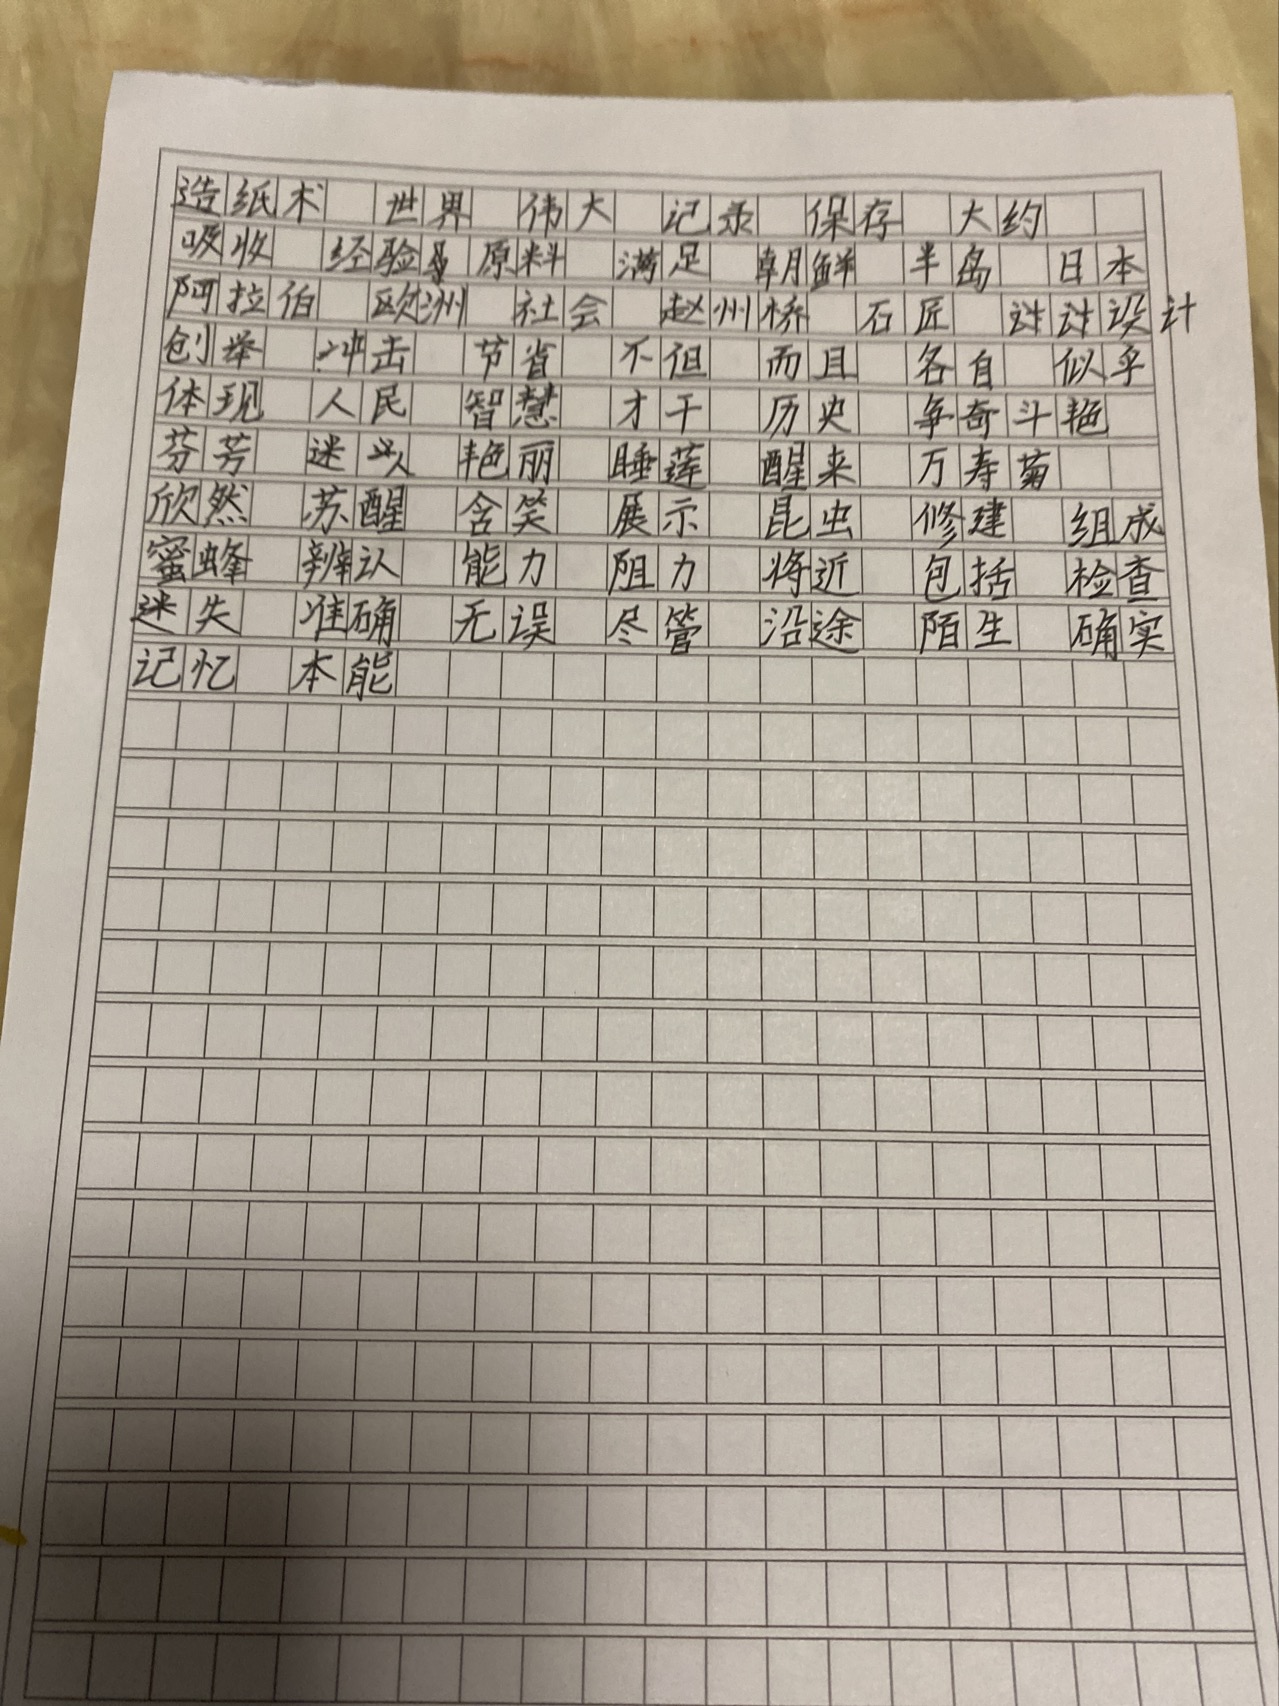 造纸术 世界 伟大 记录 保存 大约
吸收 经验 原料 满足 朝鲜 半岛 日本
阿拉伯 欧洲 社会 赵州桥 石匠 设计
创举 冲击 节省 不但 而且 各自 似乎
体现 人民 智慧 才干 历史 争奇斗艳
芬芳 迷人 艳丽 睡莲 醒来 万寿菊
欣然 苏醒 含笑 展示 昆虫 修建 组成
蜜蜂 辨认 能力 阻力 将近 包括 检查
迷失 准确 无误 尽管 沿途 陌生 确实
记忆 本能